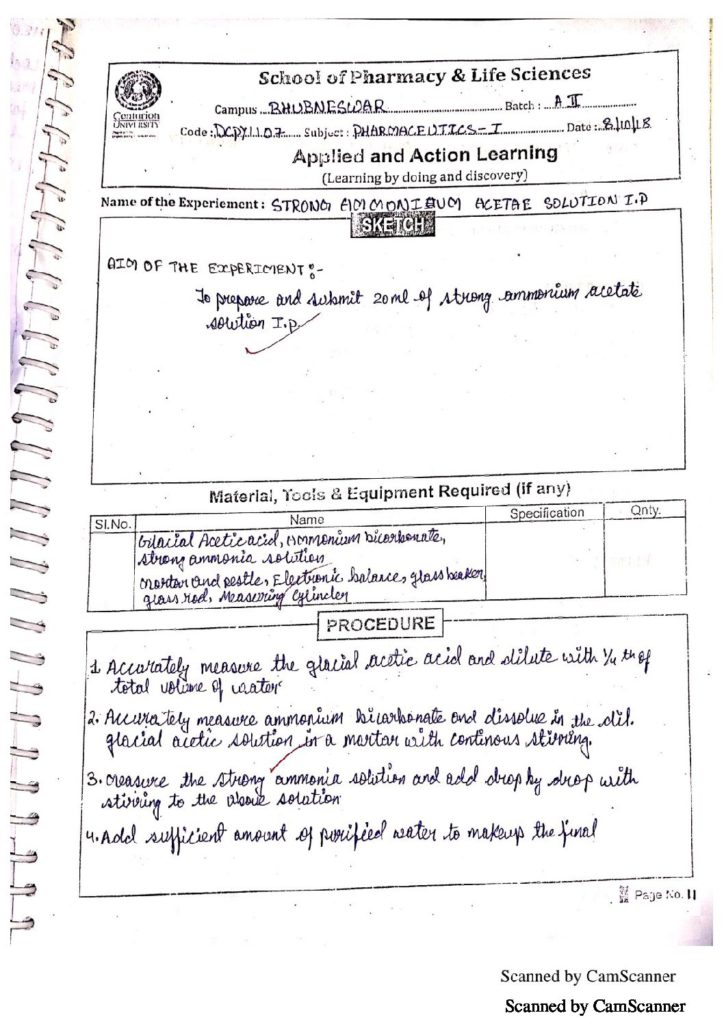 School of Pharmacy & Life Sciences
Centurion
UNIVERSITY
Campus ... BHUBNESWAR ... Batch : A II
Code : DCPY1107 ... Subject : PHARMACEUTICS-I ... Date : 8/10/18
Applied and Action Learning
(Learning by doing and discovery)
Name of the Experiement : STRONG AMMONIUM ACETAE SOLUTION I.P
SKETCH
AIM OF THE EXPERIMENT :-
To prepare and submit 20ml of strong ammonium acetate
solution I.p.
Material, Tools & Equipment Required (if any)
Sl.No. Name Specification Qnty.
Glacial Acetic acid, Ammonium bicarbonate,
strong ammonia solution
mortar and pestle, Electronic balance, glass beaker,
glass rod, Measuring Cylinder
PROCEDURE
1. Accurately measure the glacial acetic acid and dilute with 1/4 th of
total volume of water
2. Accurately measure ammonium bicarbonate and dissolve in the dil.
glacial acetic solution in a mortar with continous stirring.
3. measure the strong ammonia solution and add drop by drop with
stirring to the above solution
4. Add sufficient amount of purified water to makeup the final
Page No. 11
Scanned by CamScanner
Scanned by CamScanner